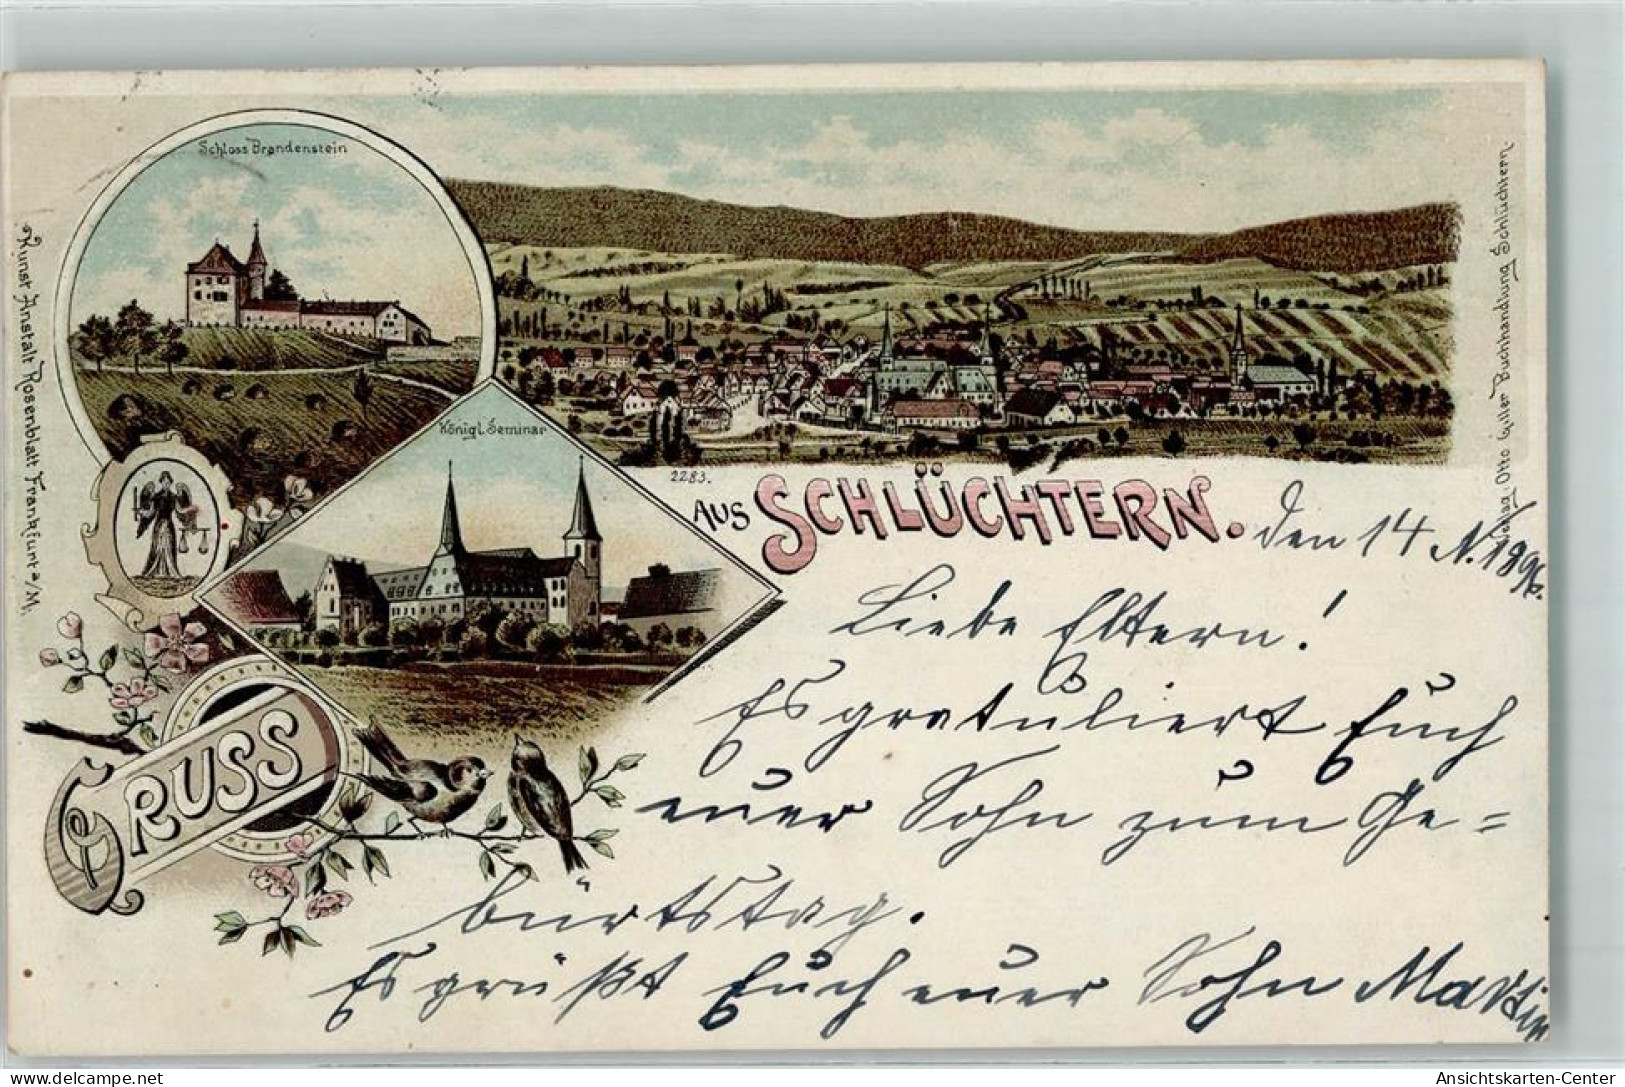 Schloss Brandenstein
Königl. Seminar
Kunst Anstalt Rosenblatt Frankfurt a/M.
Otto Giller Buchhandlung Schlüchtern.
2283.
GRUSS
AUS SCHLÜCHTERN.
den 14 N. 1896.
Liebe Eltern!
Es gratuliert Euch
euer Sohn zum Ge=
burtstag.
Es grüßt Euch euer Sohn Martin
Ansichtskarten-Center